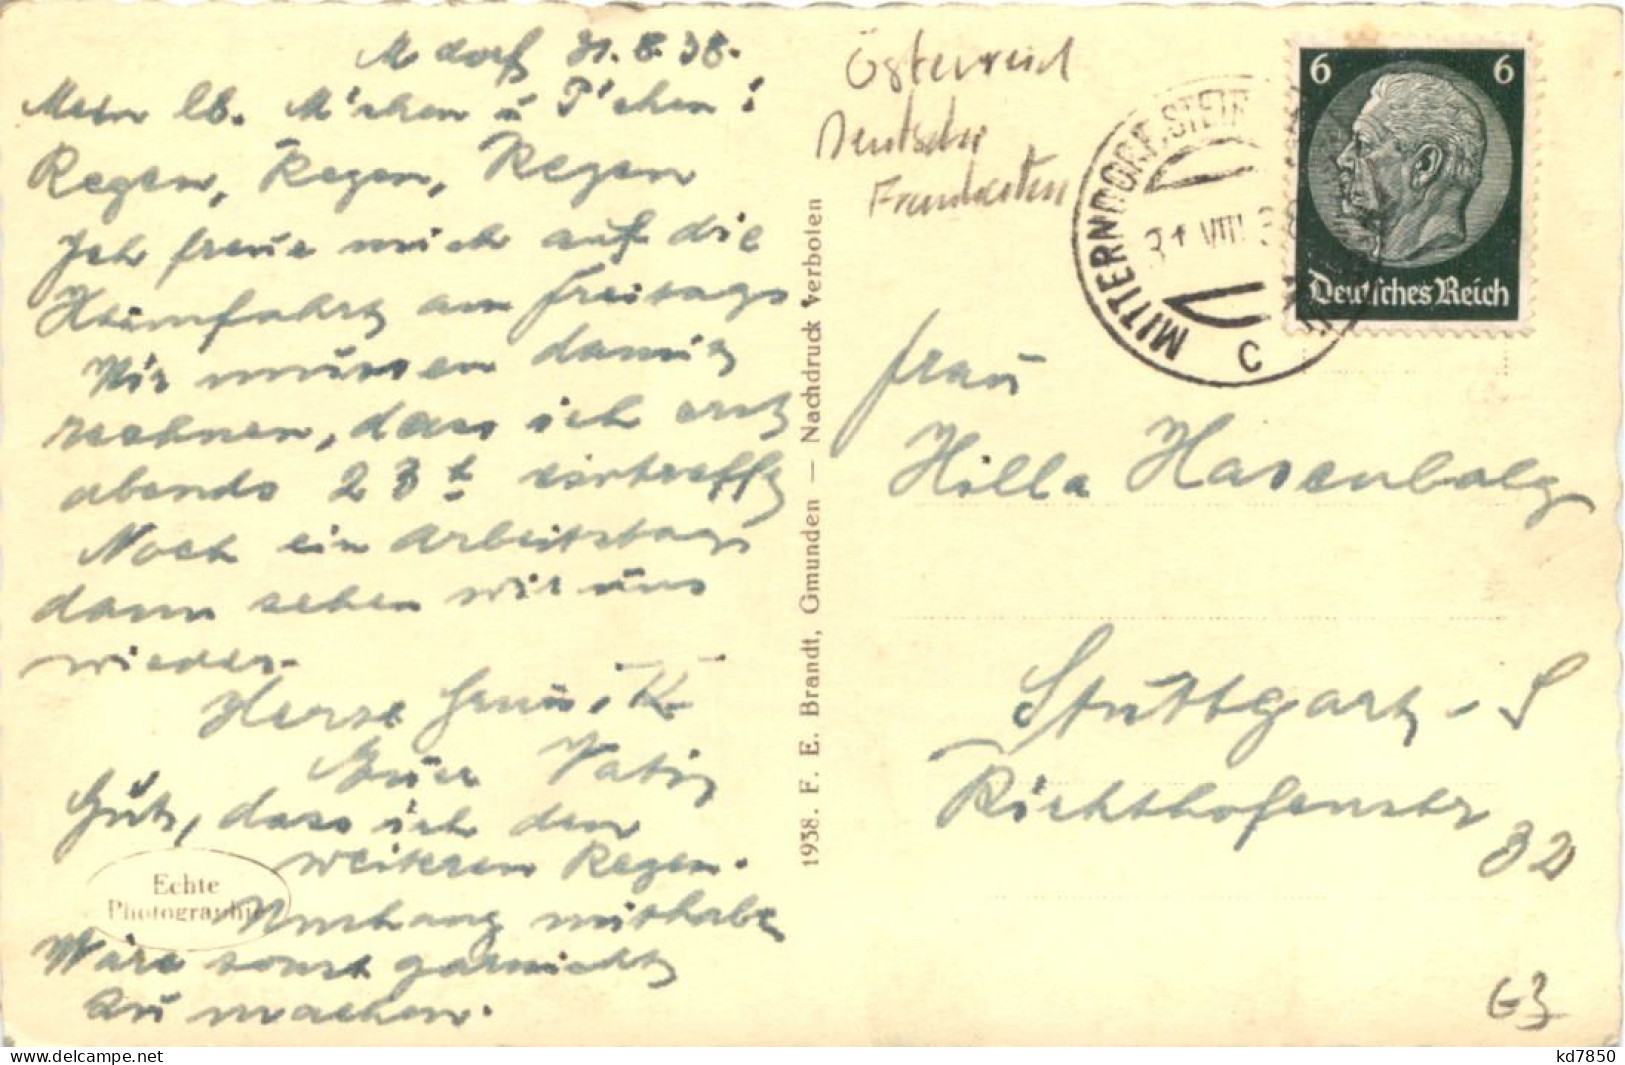 M dorf 31.8.38.
Mein lb. M'chen u P'chen!
Regen, Regen, Regen
Ich freue mich auf die
Heimfahrt am Freitags.
Wir müssen damit
rechnen, dass ich erst
abends 23 t eintreffe
Noch ein Arbeitstag
dann sehen wir uns
wieder.
Herzl Gruss. K
Euer Vati
Gut, dass ich den
weiteren Regen.
Umhang mithabe
Wäre sonst garnichts
zu machen.
Echte
Photographie
1938. F. E. Brandt, Gmunden — Nachdruck verboten
Österreich
Deutsche
Frankaturen
MITTERNDORF, STEIR
31 VIII 3
C
6 6
Deutsches Reich
Frau
Hilla Hasenbalg
Stuttgart - S
Richthofenstr
32
G3
kd7850
www.delcampe.net